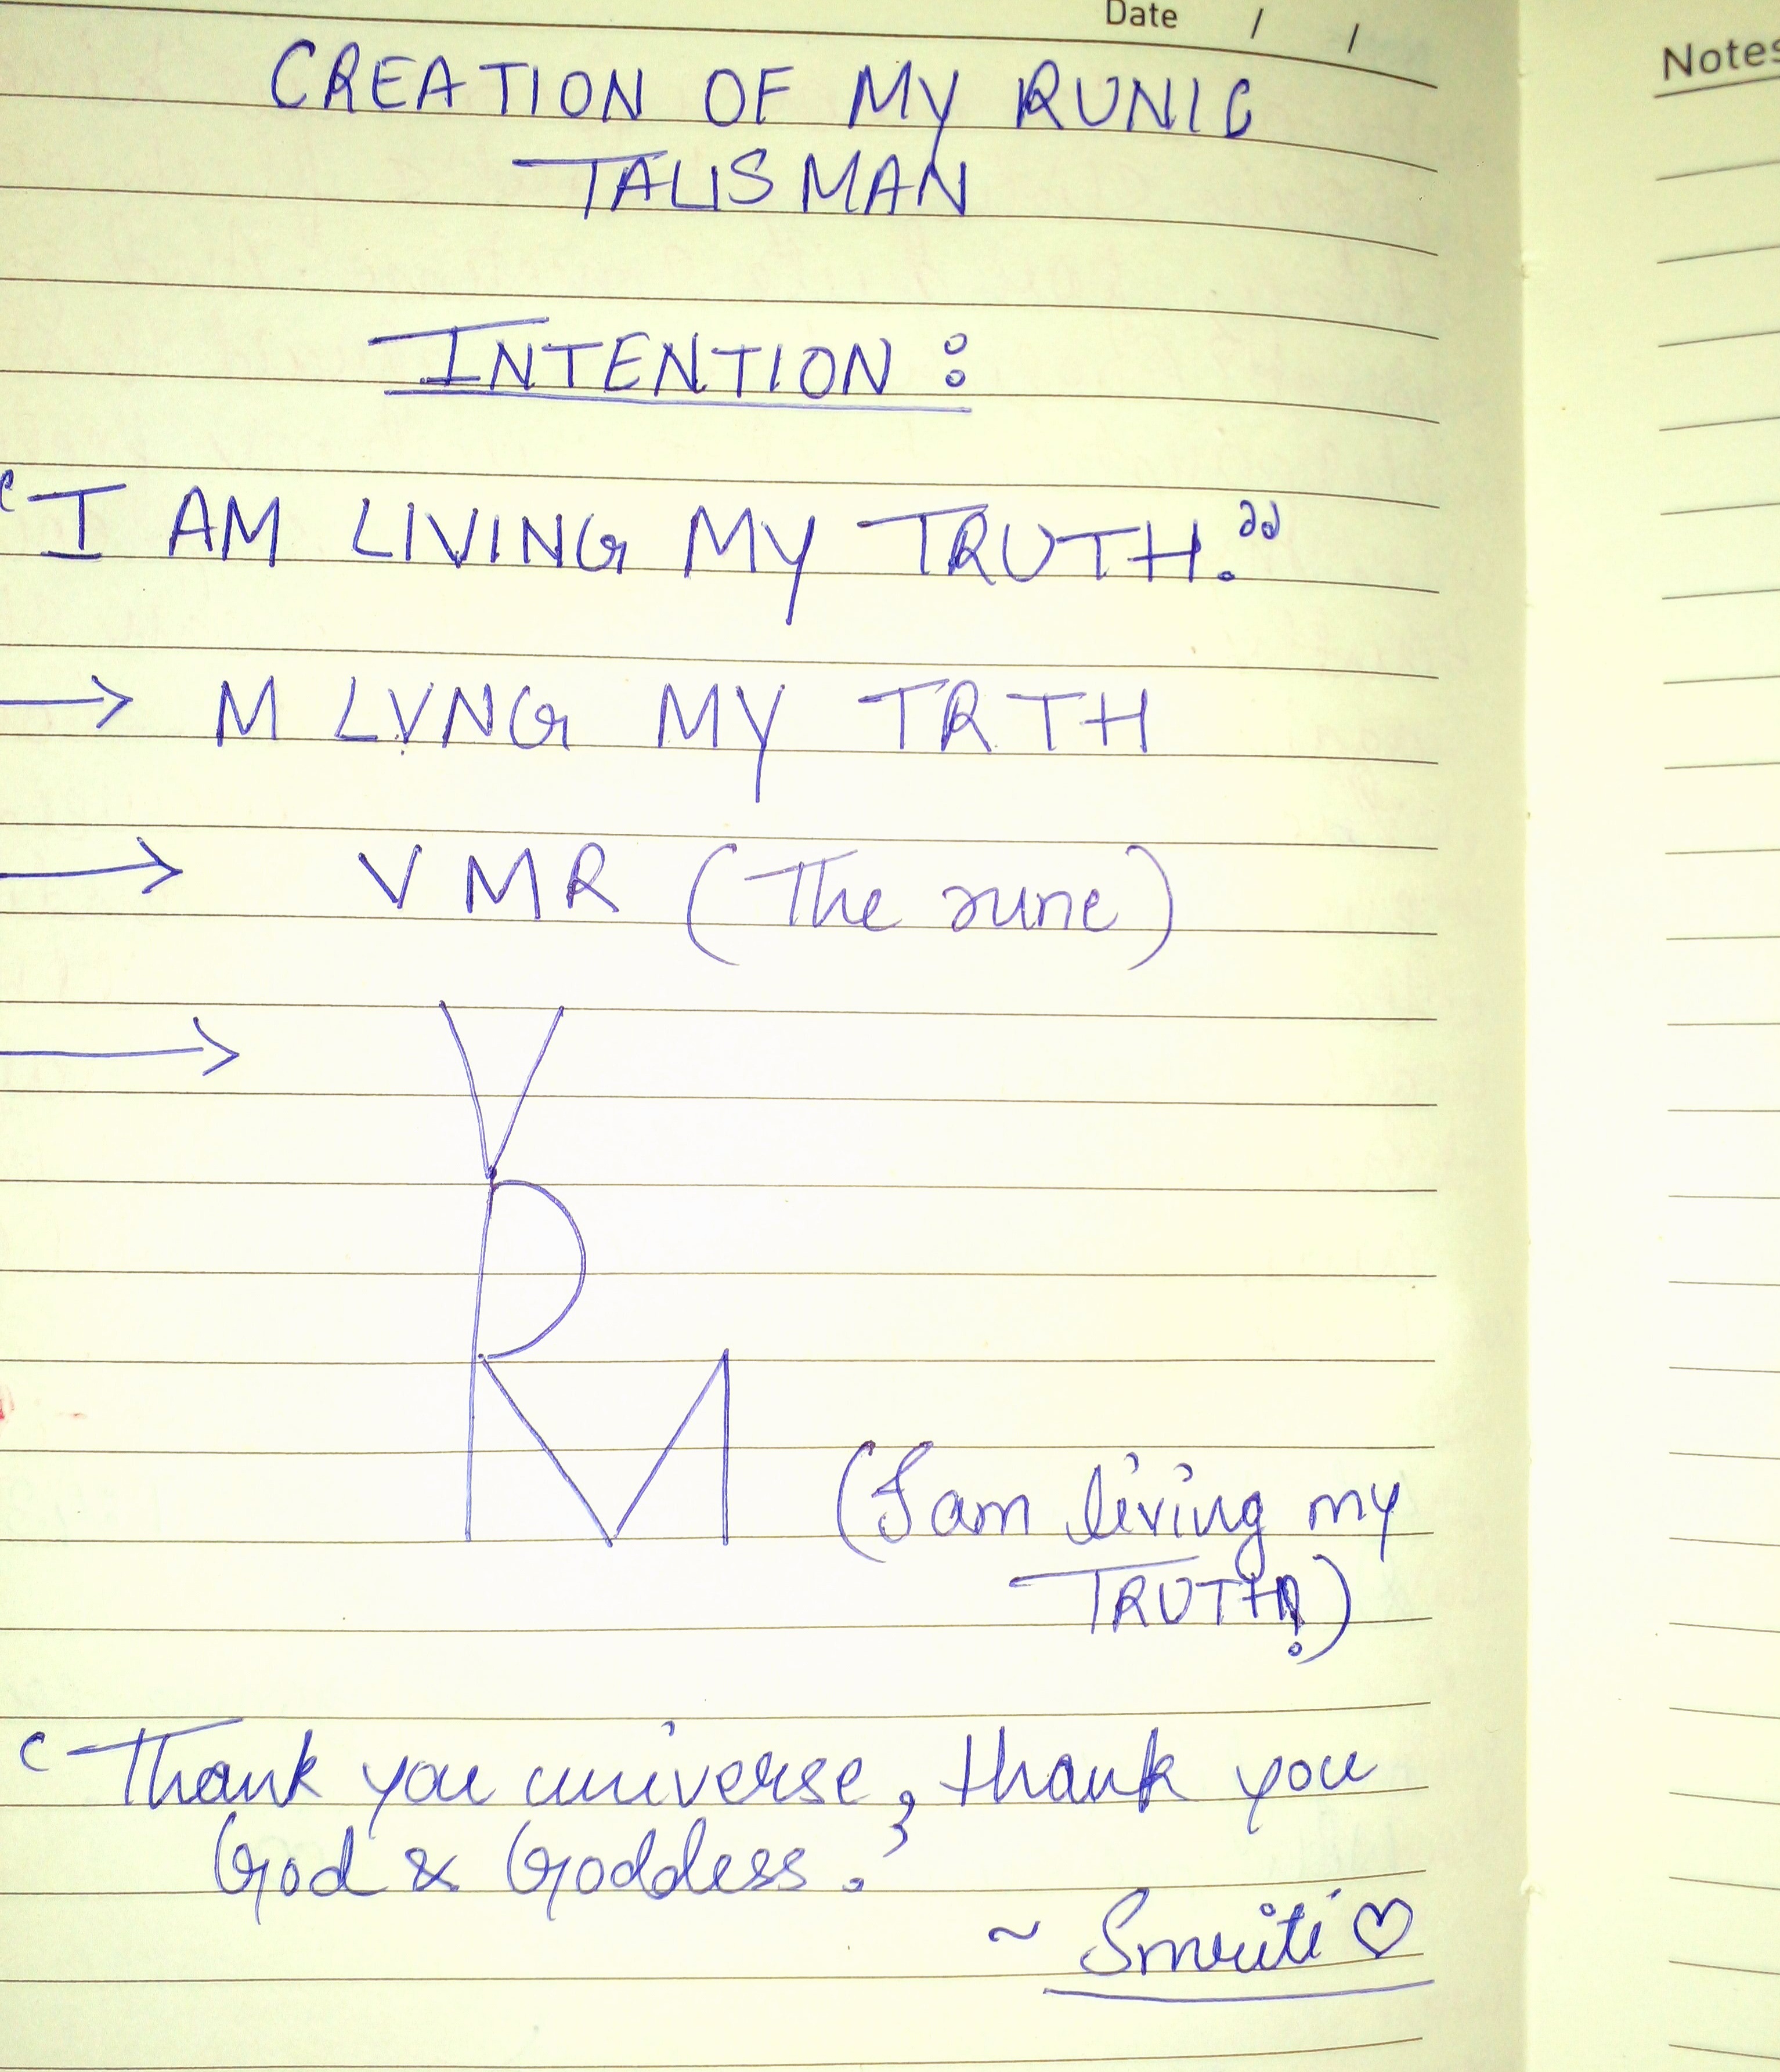 Date / /
Notes
CREATION OF MY RUNIC
TALISMAN
INTENTION:
"I AM LIVING MY TRUTH."
→ M LVNG MY TRTH
→ VMR (The rune)
→ V
R
M
(I am living my
TRUTH!)
"Thank you universe, thank you
God & Goddess."
~ Smriti ♡